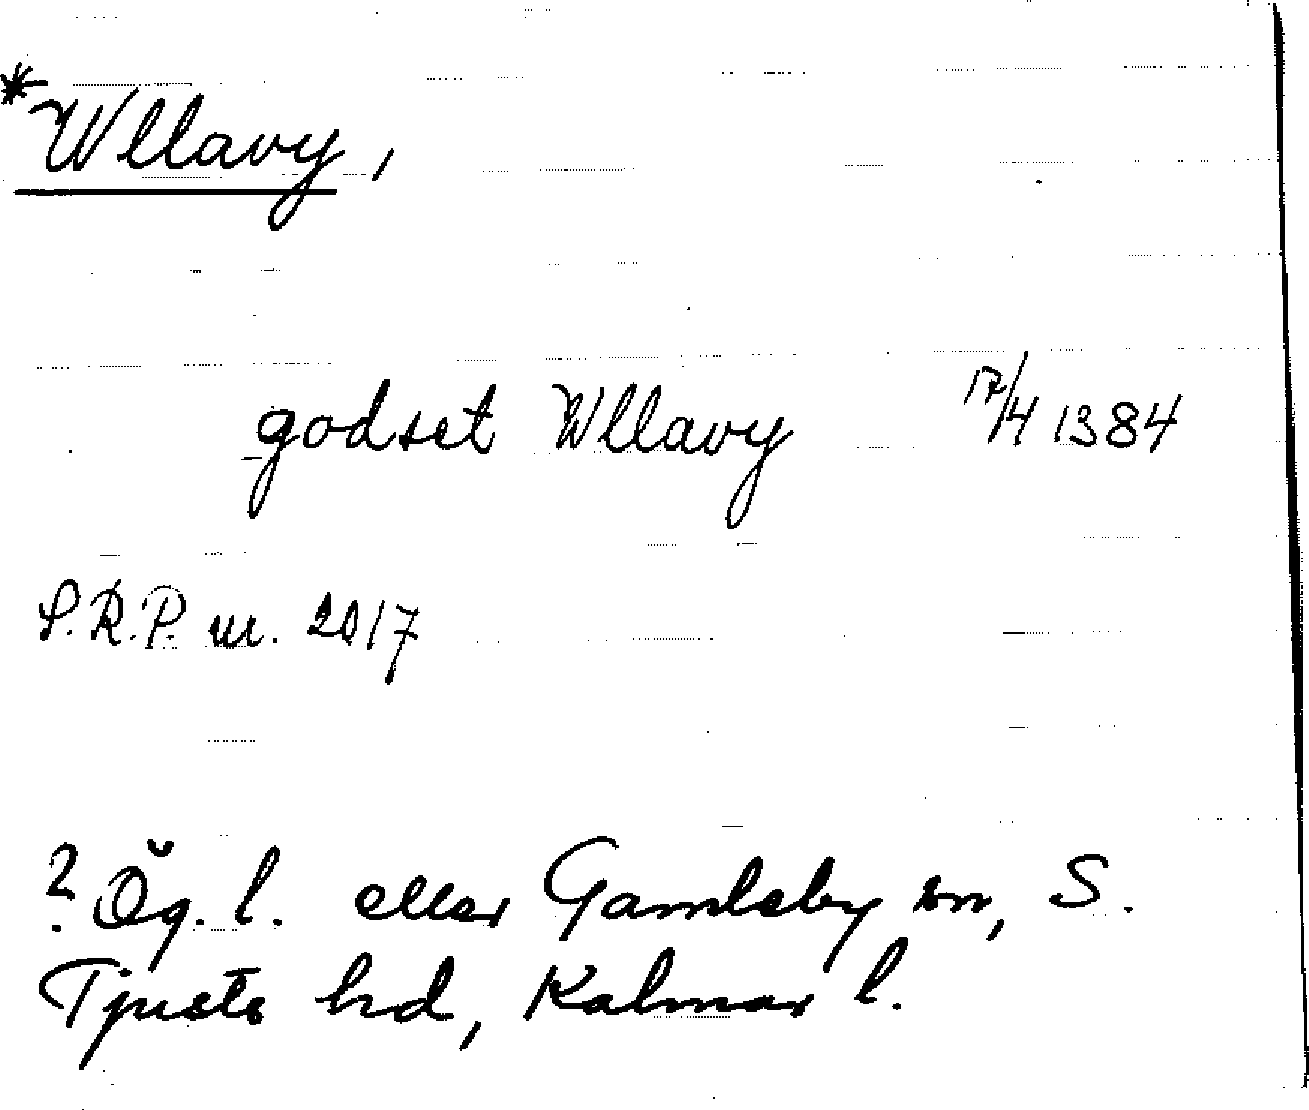 *Wllavy,
godset Wllavy 17/4 1384
S.R.P. nr. 2017
? Ög. l. eller Gamleby sn, S.
Tjusts hd, Kalmar l.